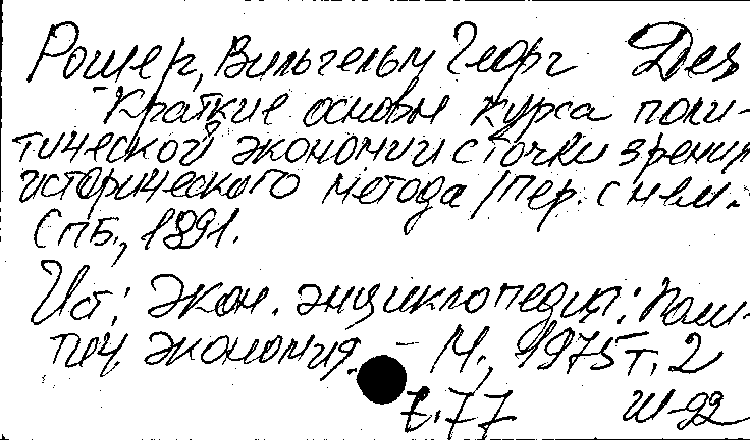 Рошер, Вильгельм Георг Дез
Краткие основы курса поли-
тической экономии с точки зрения
исторического метода / Пер. с нем.
СПб., 1891.
Ист: Экон. энциклопедия: Поли-
тич. экономия. - М., 1975 т. 2
с. 77 Ш-92